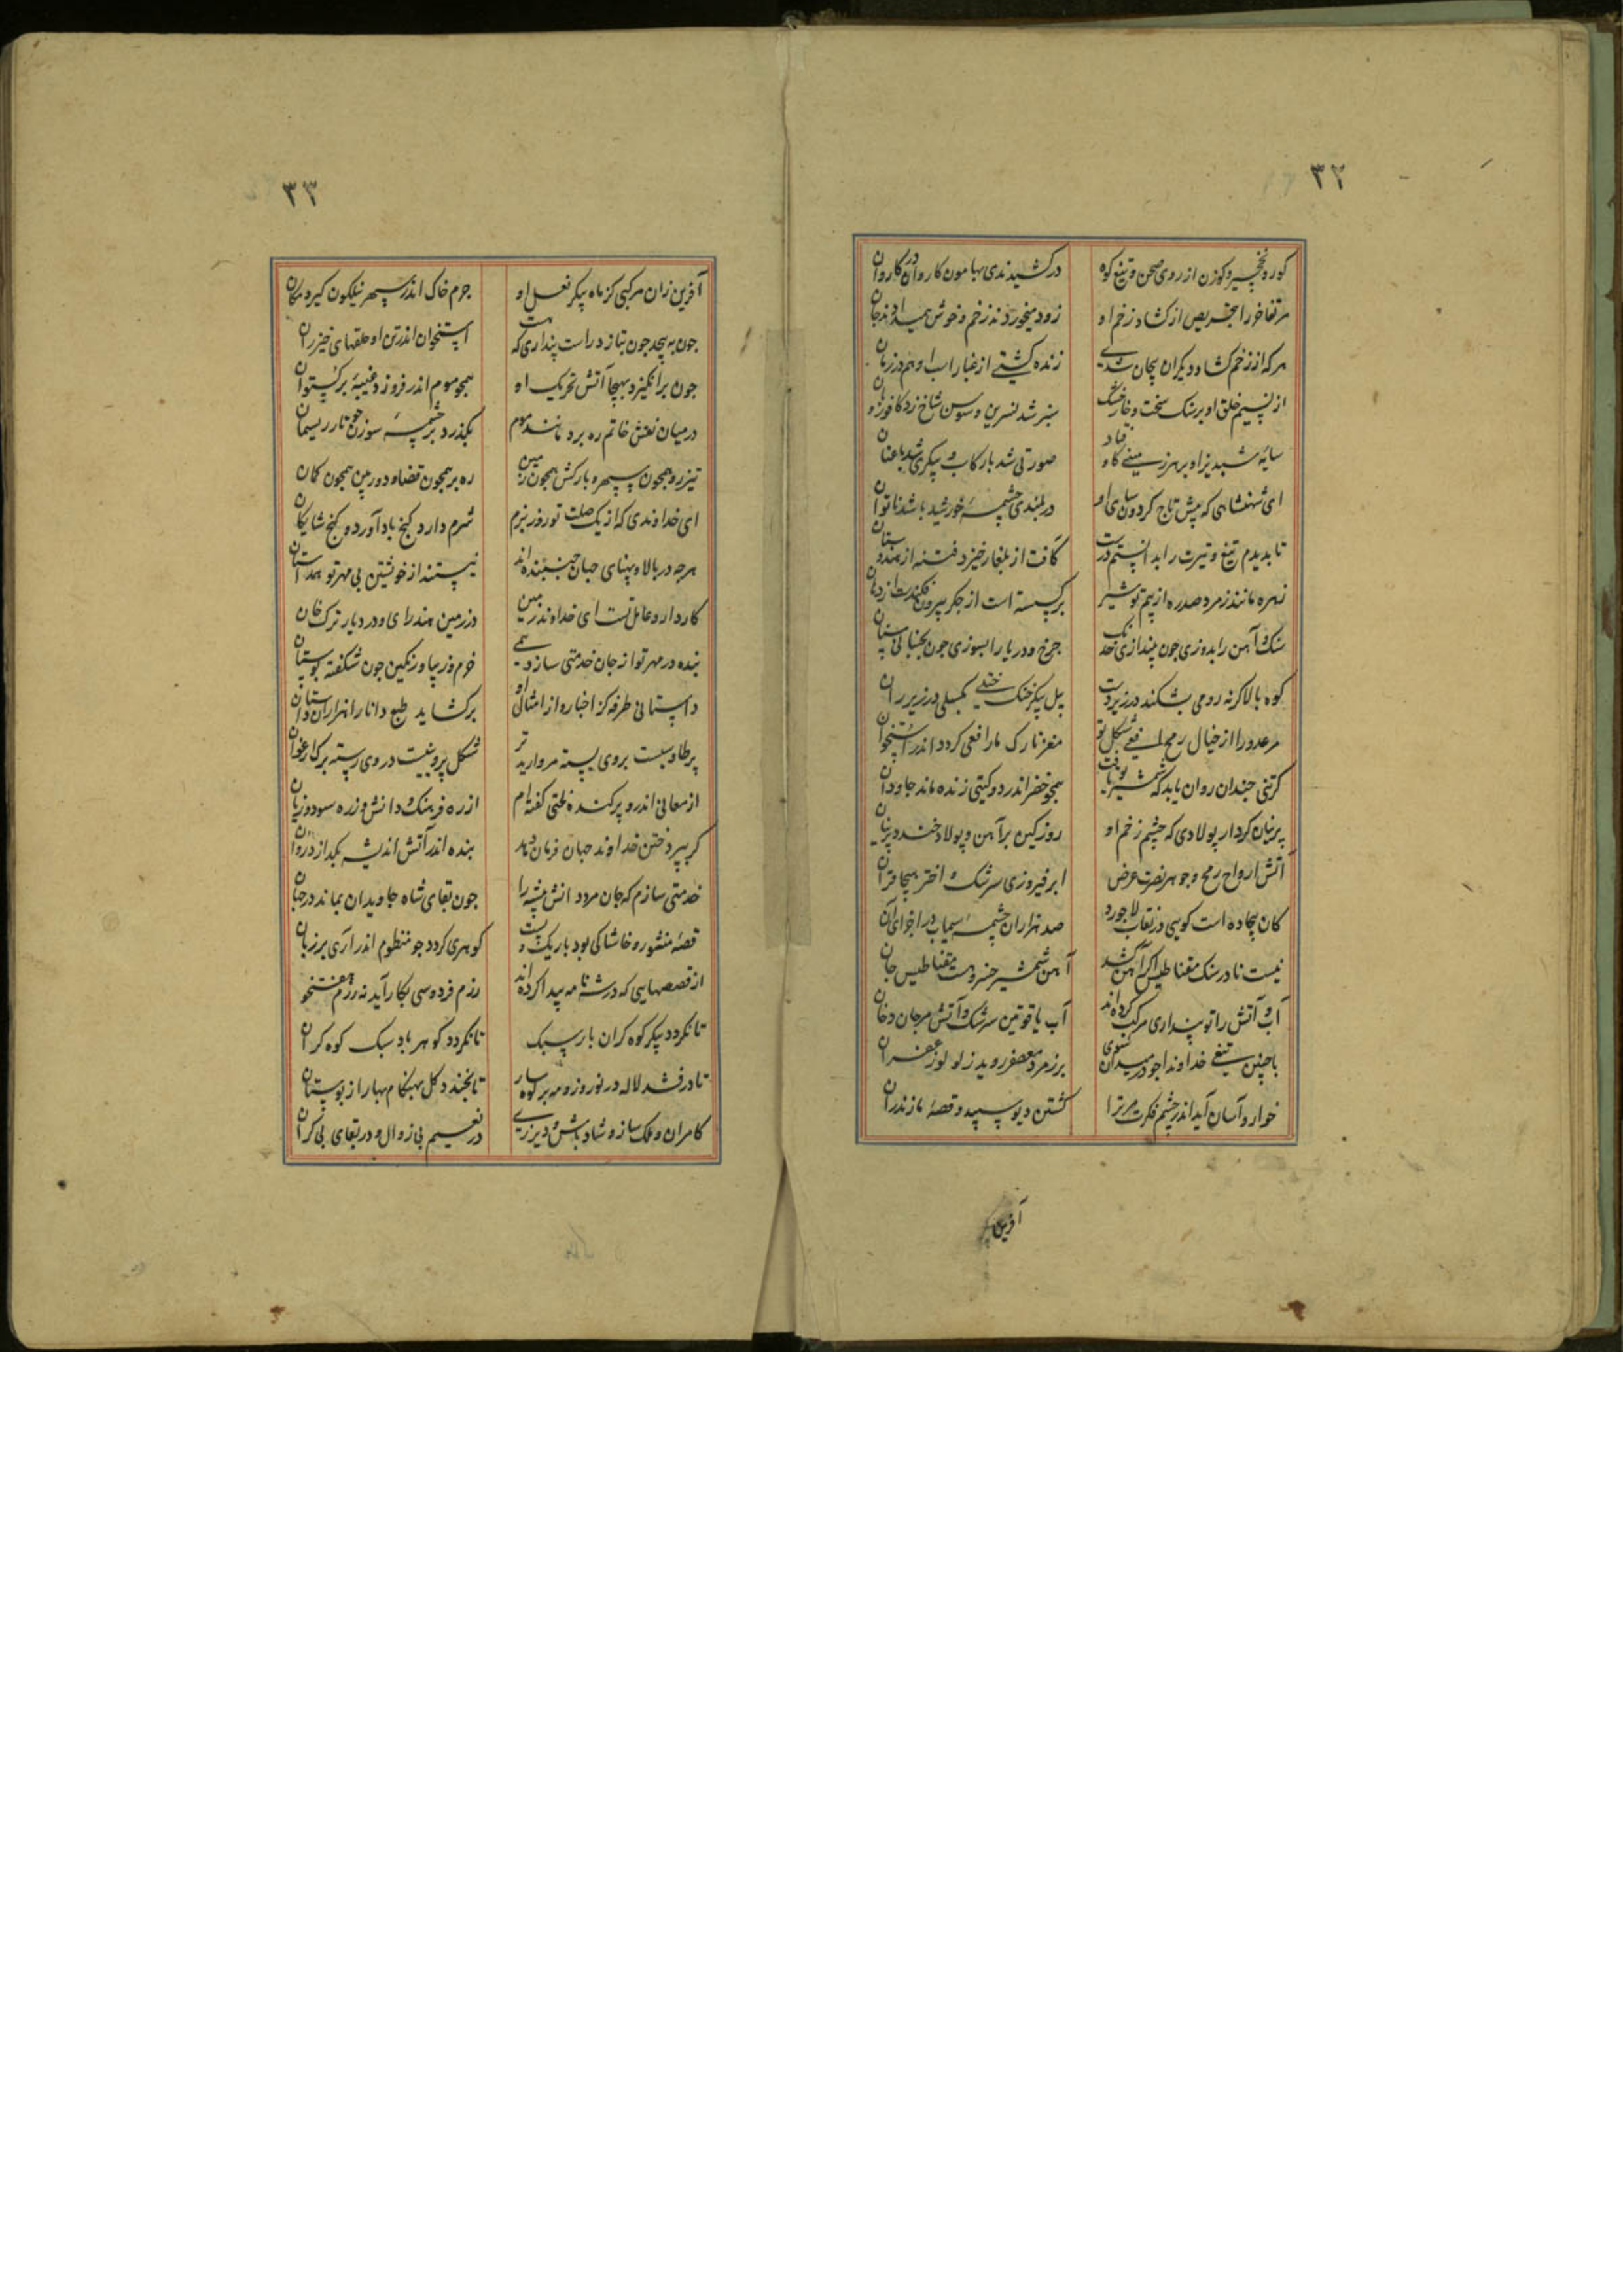 ۳۲
کور و نخجیر و کوزن از روی صحن و تیغ کوه
درکشیدندی بهامون کاروان در کاروان
زخم او
زود میخوردند زخم و خوش همیدادند جان
هرکه از زخم کشاد دیکران پیچان شدی
زنده کشتی از غبار اب او هم در زمان
از نسیم خلق او بر سنک سخت و خار خشک
سبز شد نسرین و سوسن شاخ زد
سایه شبدیز او بر هر زمینی کاوفتاد
صورتی شد با رکاب و پیکری شد با عنان
ای شهنشاهی که پیش تاج کردون سای او
در بلندی چشمه خورشید باشد ناتوان
تا بدیدم تیغ و تیرت را بدانستم درست
کافت از بلغار خیزد فتنه از هندوستان
زهره مانند زمرد صدره از بیم تو شیر
برکسسته است از جکر بیرون فکندست از دهان
سنک و آهن را بدوزی جون بیندازی خدنک
جرخ و دریا را بسوزی جون بجنبانی سنان
کوه بالا کرنه رومی بشکند در زیر دست
پیل پیکر خنک ختلی بکسلی در زیر ران
مر عدو را از خیال رمح افعی شکل تو
مغز تارک مار افعی کردد اندر استخوان
کر تنی جندان روان یابد که شمشیر تو یافت
همجو خضر اندر دو کیتی زنده ماند جاودان
پرنیان کردار پولادی که جشم زخم او
روز کین بر آهن و پولاد خندد پرنیان
آتش ارواح رمح و جوهر نصرت عرض
ابر فیروزی سرشک و اختر هیجا قران
کان بیجاده است کویی در نقاب لاجورد
صد هزاران چشمه سیماب در اجزای آن
نیست نادر سنک مقناطیس اکر آهن کشد
آهن شمشیر خسرو هست مقناطیس جان
آب و آتش را تو پنداری مرکب کرده اند
آب یاقوتین سرشک و آتش مرجان دخان
با چنین تیغی خداوندا جو در میدان شوی
بر زمرد معصفر روید ز لولو زعفران
خوار و آسان آید اندر چشم فکرت مر ترا
کشتن دیو سپید و قصه مازندران
آفرین
۳۳
آفرین زان مرکبی کز ماه پیکر نعل او
جرم خاک اندر سپهر نیلکون کیرد مکان
جون بپیجد جون بتازد راست پنداری که هست
استخوان اندر تن او حلقهای خیزران
جون برانکیزد بهیجا آتش تحریک او
همجو موم اندر فروزد غیبه برکستوان
در میان نقش خاتم ره برد مانند موم
بکذرد بر چشمه سوزن جو تار ریسمان
تیزرو همجون سپهر و بارکش همجون زمین
ره بر همجون قضا و دوربین همجون کمان
ای خداوندی که از یک صلت تو روز بزم
شرم دارد کنج باد آورد و کنج شایکان
هرجه در بالا و پهنای جهان جنبنده اند
نیستند از خویشتن بی مهر تو همداستان
کاردار و عامل تست ای خداوند زمین
در زمین هند رای و در دیار ترک خان
بنده در مهر تو از جان خدمتی سازد همی
خرم و زیبا و رنکین جون شکفته بوستان
داستانی طرفه کز اخبار و از امثال او
برکشاید طبع دانا را هزاران داستان
پر طاوسست بر روی بسته مروارید تر
شکل پروینست در وی رسته برک ارغوان
از معانی اندرو پرکنده نظمی کفته ام
از ره فرهنک و دانش وز ره سود و زیان
کر بپردختن خداوند جهان فرمان دهد
بنده اندر آتش اندیشه بکدازد روان
خدمتی سازم که جان مردد انش پیشه را
جون بقای شاه جاویدان بماند در جهان
قصه منشور و خاشاکی بود باریک و پست
کوهری کردد جو منظوم اندر آری بر زبان
از قصصهایی که در شهنامه پیدا کرده اند
رزم فردوسی بکار آید نه رزم هفتخوان
تا نکردد پیکر کوه کران بار سبک
تا نکردد کوهر باد سبک کوه کران
تا درفشد لاله در نوروز و مه بر کوهسار
تا بخندد کل بهنکام بهار از بوستان
کامران و ملک ساز و شاد باش و دیر زی
در نعیم بی زوال و در بقای بی کران